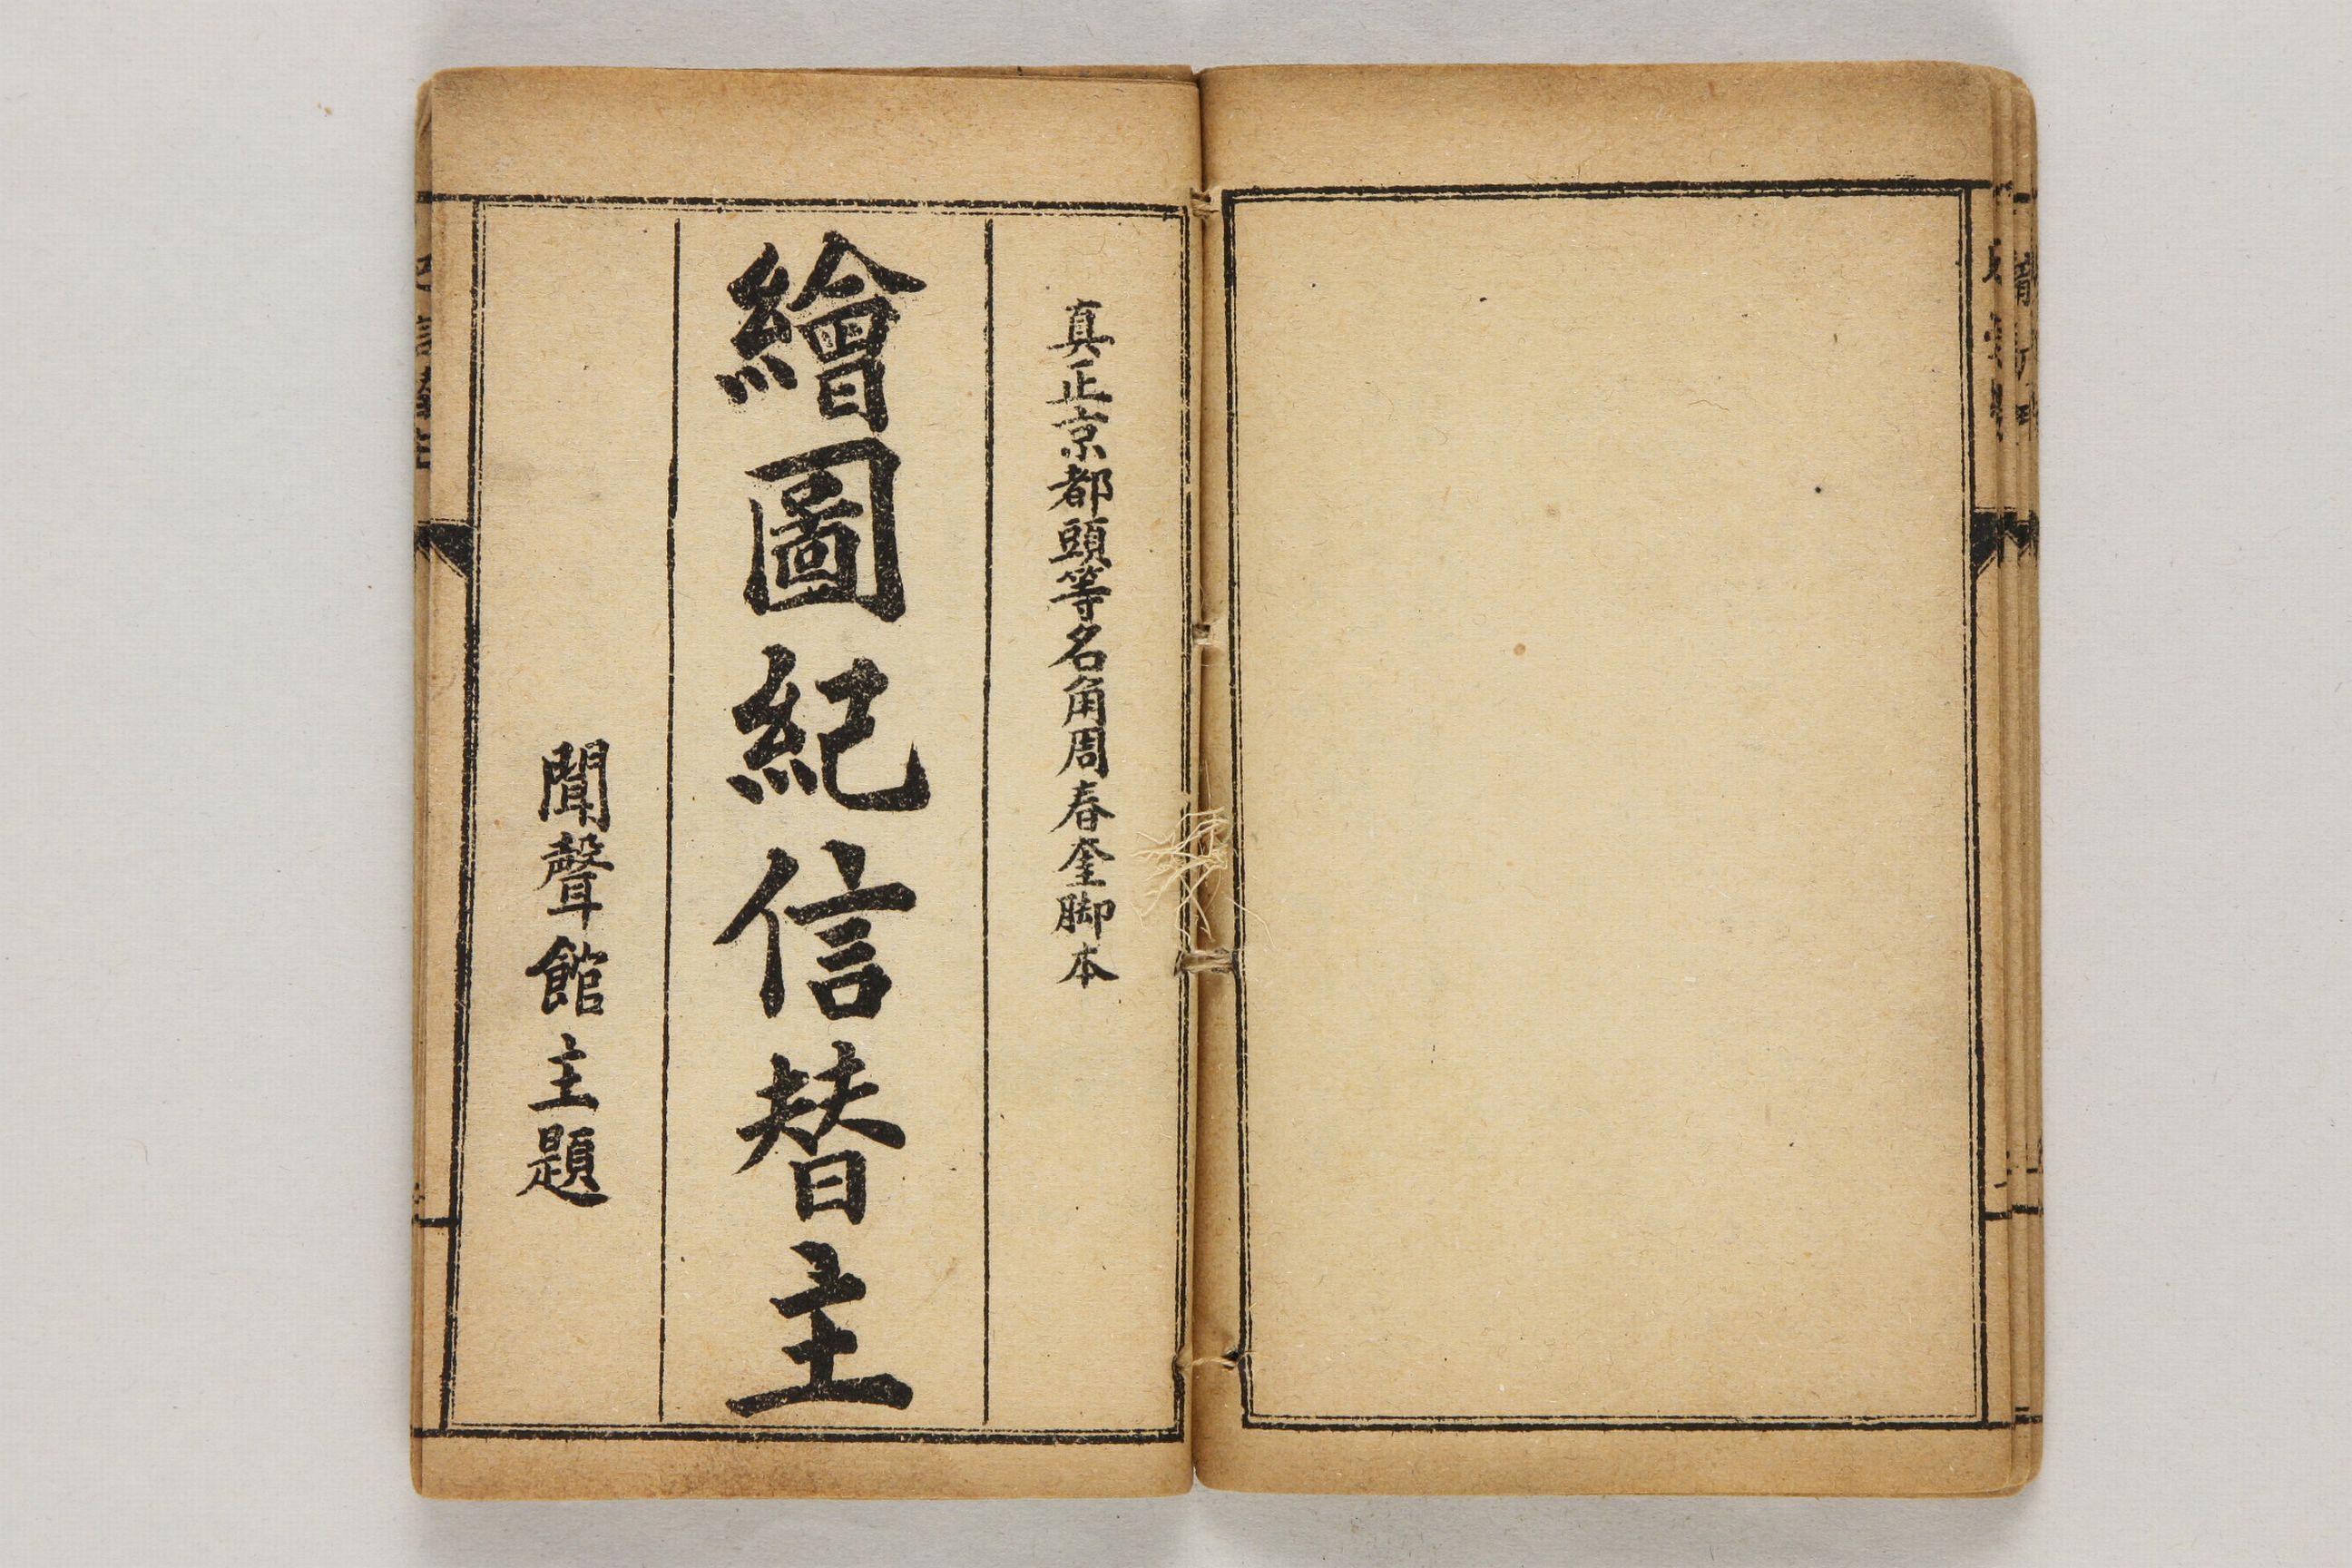 真正京都頭等名角周春奎脚本
繪圖紀信替主
聞聲館主題